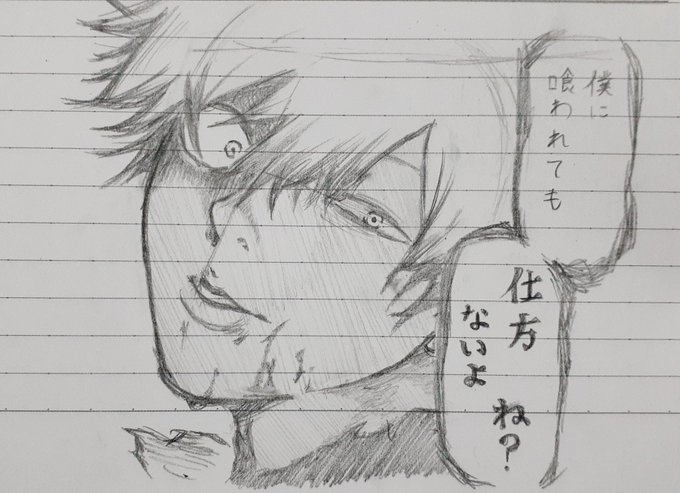 僕に
喰われても
仕方
ないよ
ね?